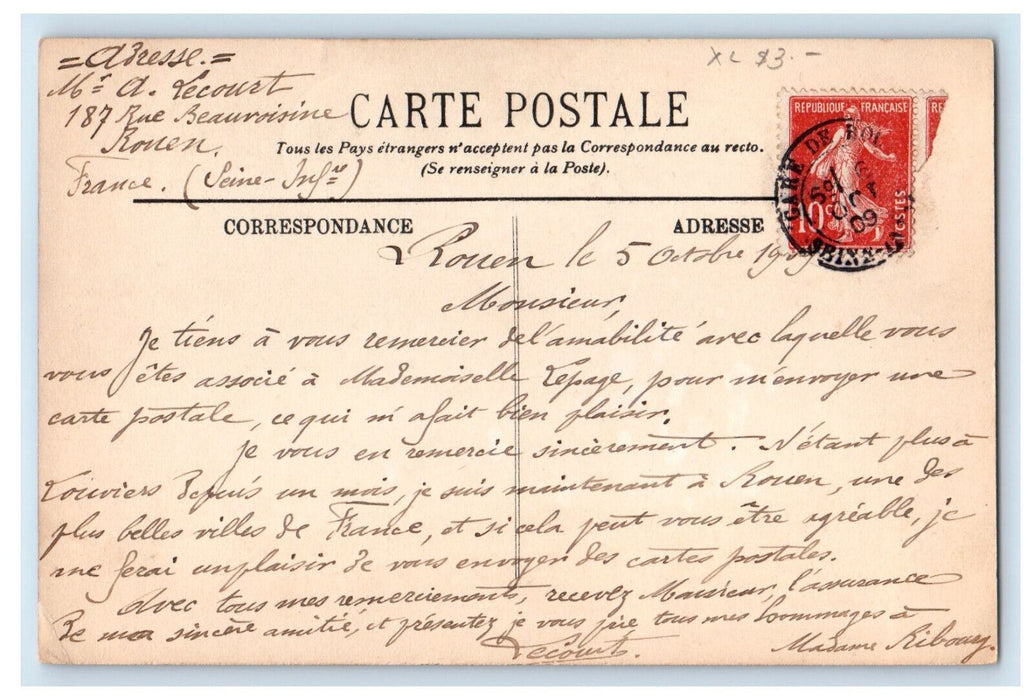 = Adresse. =
Mr A. Lecourt
187 Rue Beauvoisine
Rouen.
France. (Seine-Infre)
XL $3.-
CARTE POSTALE
Tous les Pays étrangers n'acceptent pas la Correspondance au recto.
(Se renseigner à la Poste).
REPUBLIQUE FRANÇAISE
RF
10c
POSTES
GARE DE
OCT
09
CORRESPONDANCE
ADRESSE
Rouen le 5 Octobre 1909
Monsieur,
Je tiens à vous remercier de l'amabilité avec laquelle vous
vous êtes associé à Mademoiselle Lepage, pour m'envoyer une
carte postale, ce qui m'a fait bien plaisir.
Je vous en remercie sincèrement. N'étant plus à
Louviers depuis un mois, je suis maintenant à Rouen, une des
plus belles villes de France, et si cela peut vous être agréable, je
me ferai un plaisir de vous envoyer des cartes postales.
Avec tous mes remerciements, recevez Monsieur, l'assurance
de ma sincère amitié, et présentez je vous prie tous mes hommages à
Madame Ribouey.
Lecourt.